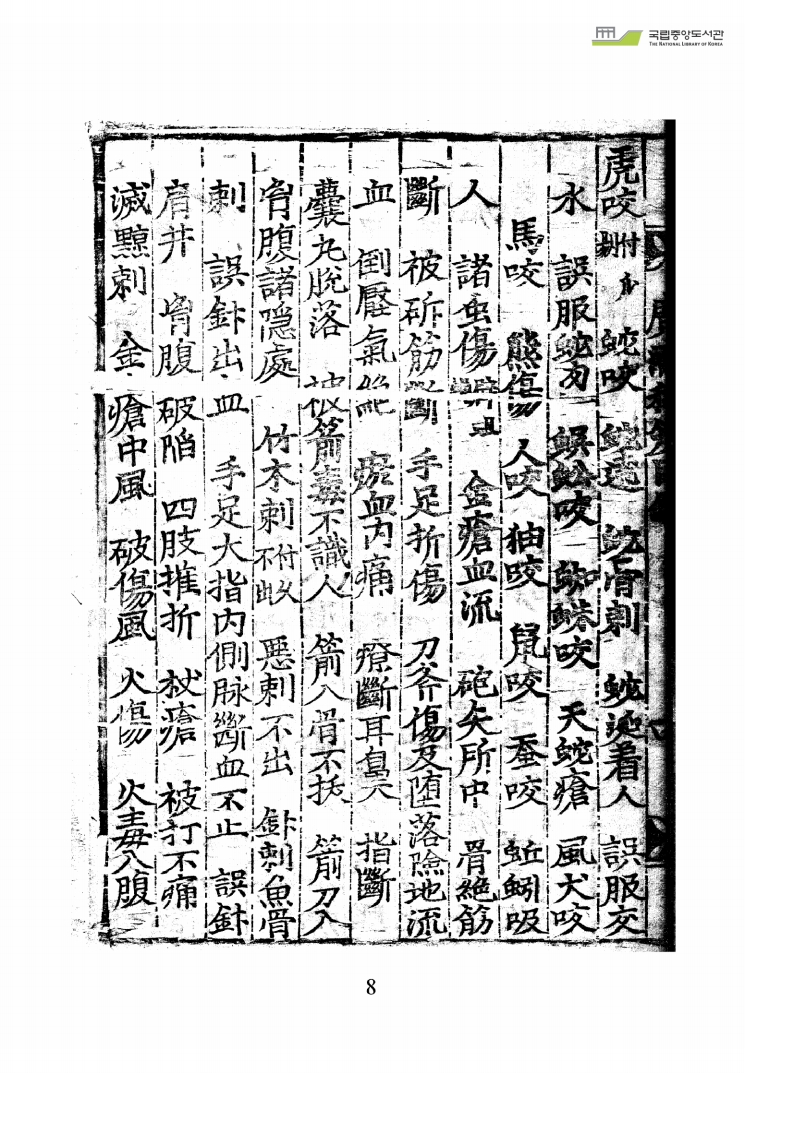 국립중앙도서관
THE NATIONAL LIBRARY OF KOREA
虎咬 附爪 蛇咬 蛇遶 蛇骨刺 蛇涎着人 誤服交
水 誤服蛇 蜈蚣咬 蜘蛛咬 天蛇瘡 風犬咬
馬咬 熊傷 人咬 猫咬 鼠咬 蚕咬 蚯蚓吸
人 諸虫傷 金瘡血流 砲矢所中 骨絶筋
斷 被斫筋斷 手足折傷 刀斧傷及堕落險地流
血 倒壓氣絶 瘀血内痛 療斷耳鼻 指斷
囊丸脫落 被箭毒不識人 箭入骨不拔 箭刀入
胷腹諸隠處 竹木刺 不出 惡刺不出 針刺魚骨
刺 誤針出血 手足大指内側脉斷血不止 誤針
肩井 胷腹破陷 四肢摧折 杖瘡 被打不痛
滅黥刺 金瘡中風 破傷風 火傷 火毒入腹
8